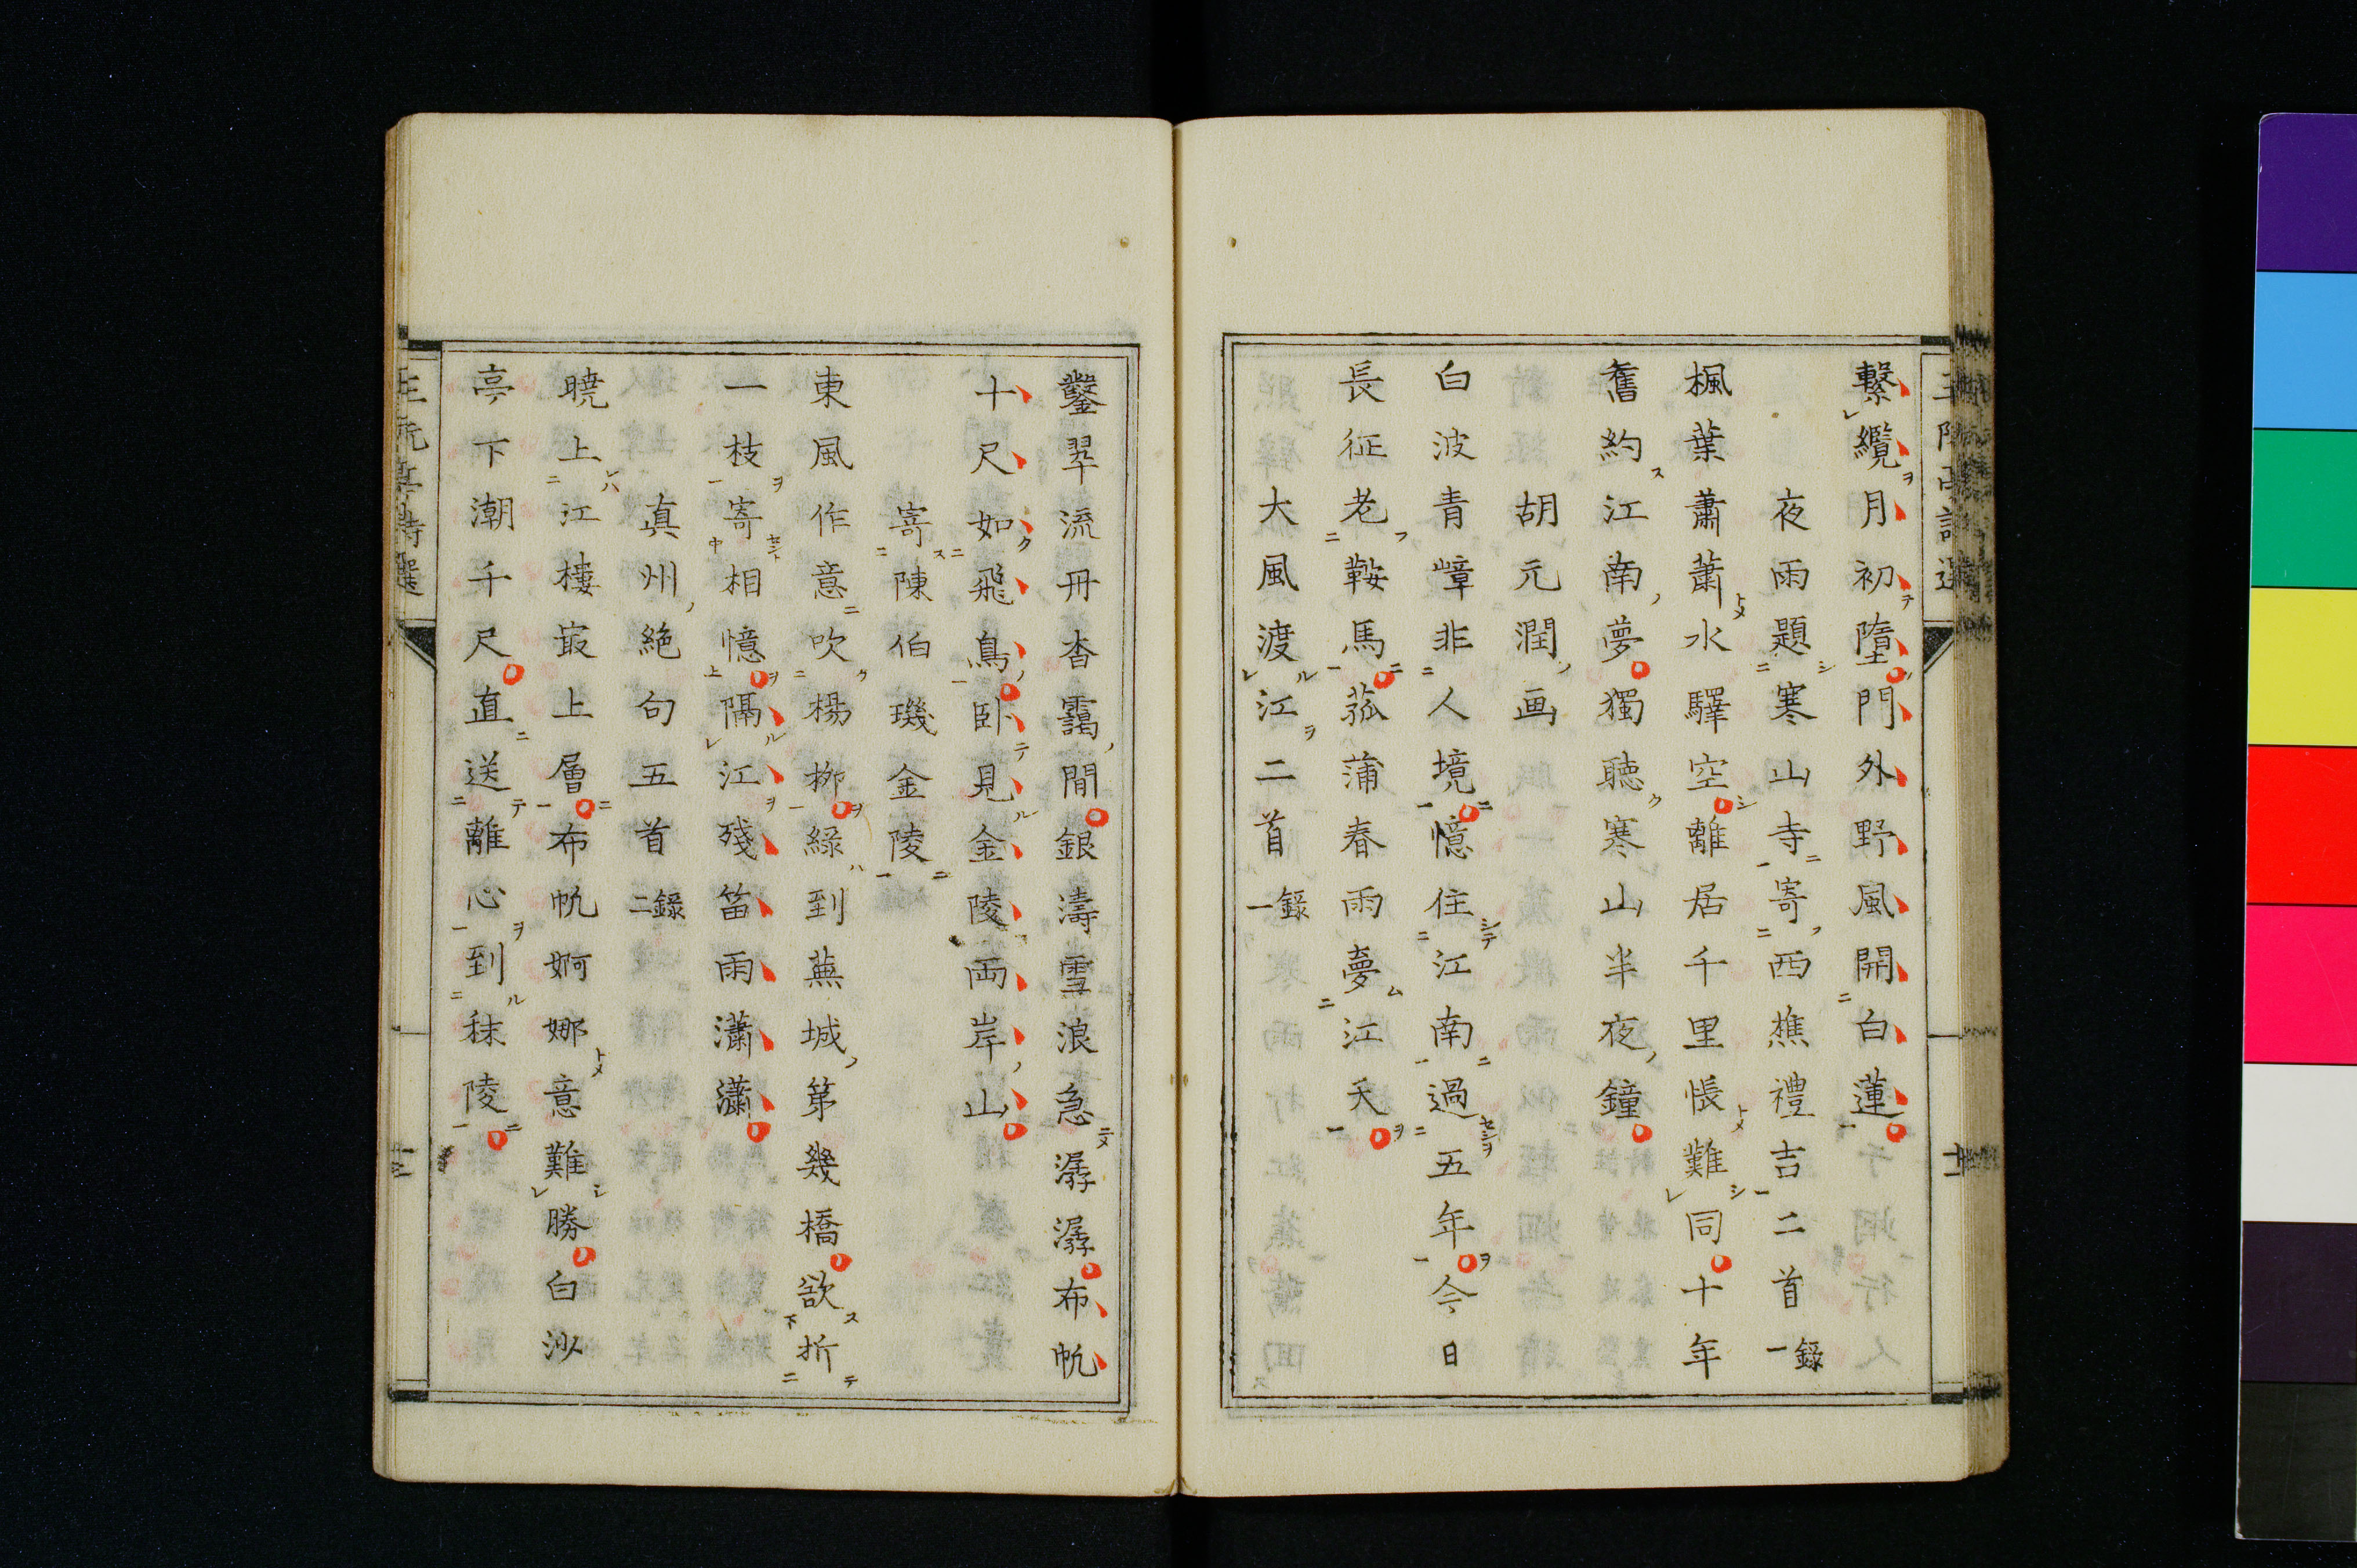 繫纜月初墮門外野風開白蓮
夜雨題寒山寺寄西樵禮吉二首錄一
楓葉蕭蕭水驛空離居千里悵難同十年
舊約江南夢獨聽寒山半夜鐘
胡元潤画
白波青嶂非人境憶住江南過五年今日
長征老鞍馬菰蒲春雨夢江天
大風渡江二首錄一
鑿翠流丹杳靄間銀濤雪浪急潺潺布帆
十尺如飛鳥卧見金陵両岸山
寄陳伯璣金陵
東風作意吹楊栁緑到蕪城第幾橋欲折
一枝寄相憶隔江殘笛雨瀟瀟
真州絶句五首錄二
曉上江樓㝡上層布帆婀娜意難勝白沙
亭下潮千尺直送離心到秣陵